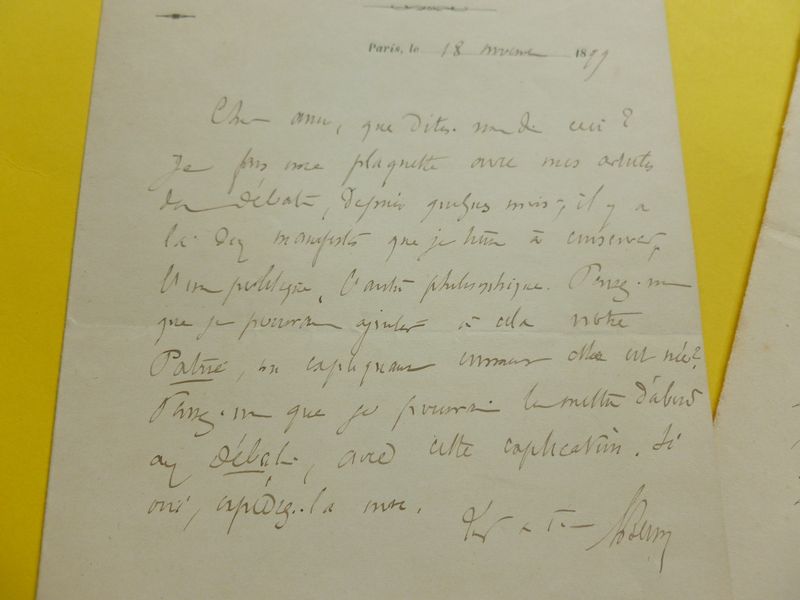 Paris, le 18 novembre 1899
Cher ami, que dites-vous de ceci ?
Je fais une plaquette avec mes articles
des Débats, Depuis quelques mois ; il y a
là Deux manifestes que je tiens à conserver,
l'un politique, l'autre philosophique. Pensez-vous
que je pourrais ajouter à cela notre
Patrie, en expliquant comment elle est née ?
Pensez-vous que je pourrais la mettre D'abord
aux Débats, avec cette explication. Si
oui, expédiez-la moi.